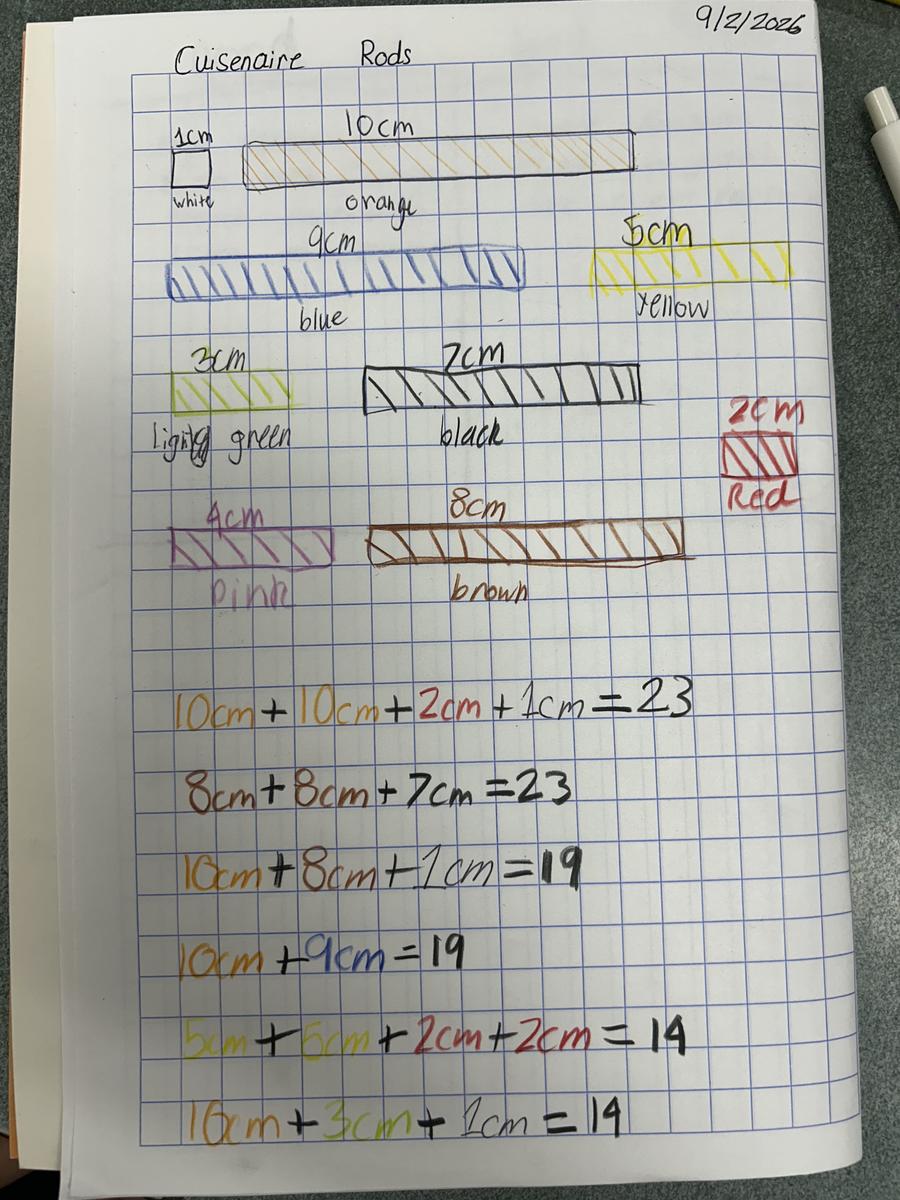 9/2/2026
Cuisenaire Rods
1cm 10cm
white orange
9cm 5cm
blue yellow
3cm 7cm
2cm
light green black
Red
4cm 8cm
pink brown
10cm + 10cm + 2cm + 1cm = 23
8cm + 8cm + 7cm = 23
10cm + 8cm + 1cm = 19
10cm + 9cm = 19
5cm + 5cm + 2cm + 2cm = 14
10cm + 3cm + 1cm = 14